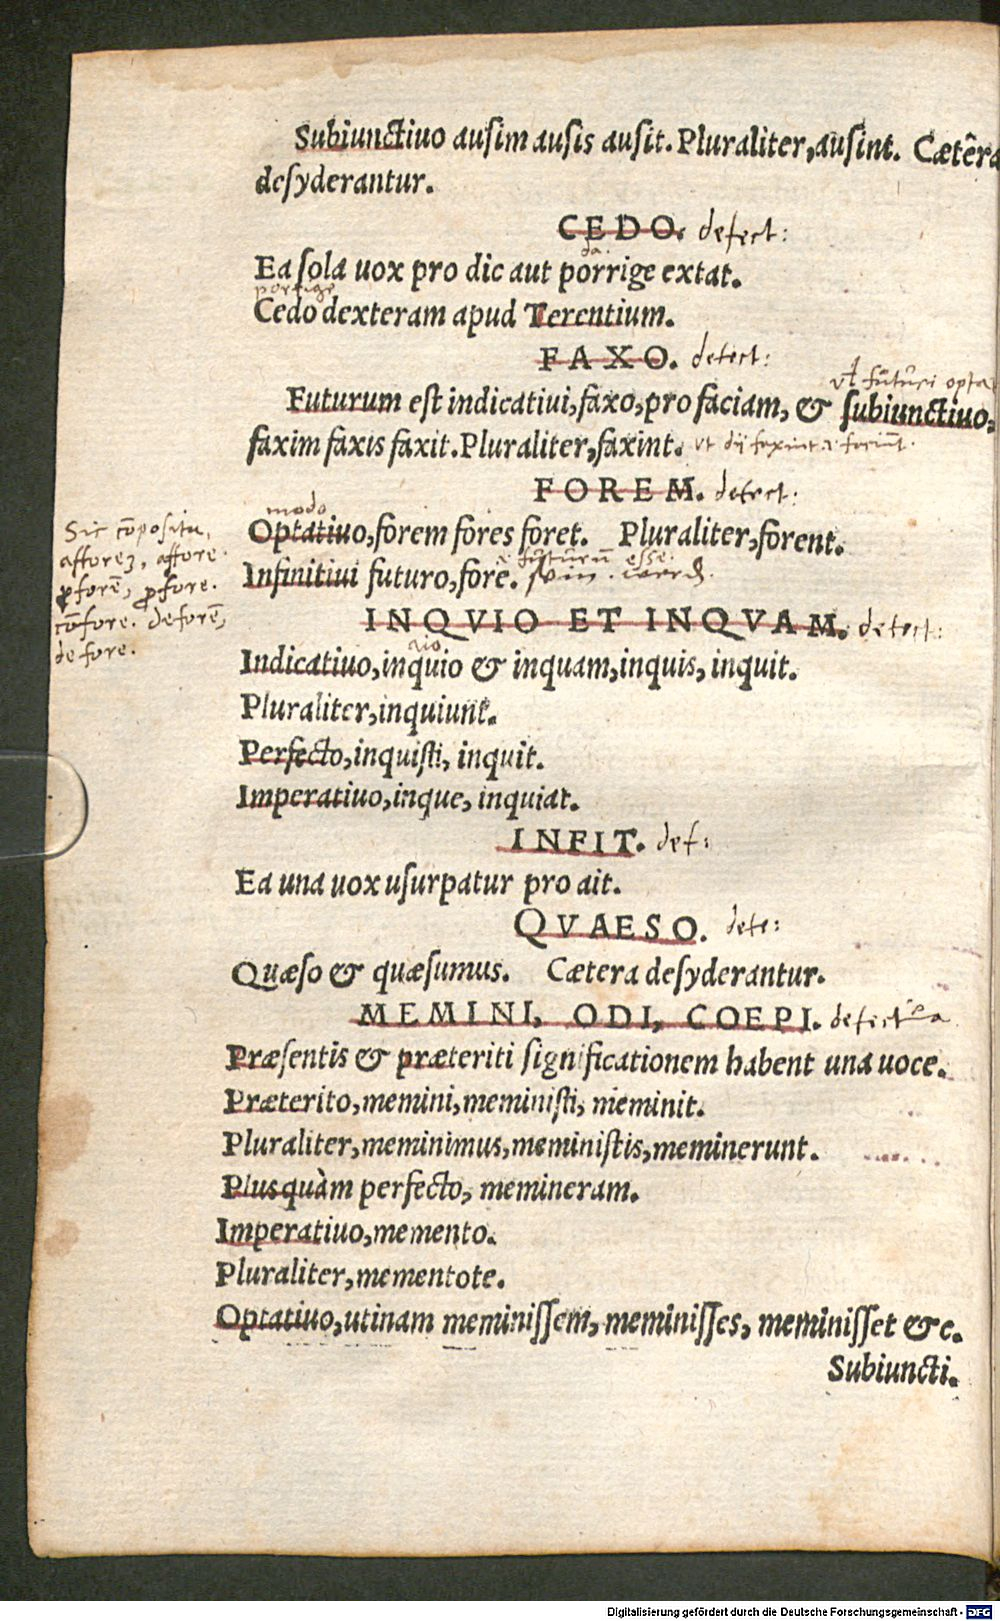 Subiunctiuo ausim ausis ausit. Pluraliter, ausint. Cætêra
desyderantur.
CEDO. defect:
Ea sola uox pro dic aut porrige extat.
da.
porrige
Cedo dexteram apud Terentium.
FAXO. defect:
vt futuri opta
Futurum est indicatiui, faxo, pro faciam, & subiunctiuo,
faxim faxis faxit. Pluraliter, faxint. vt dij faxint
FOREM. defect:
modo
Optatiuo, forem fores foret. Pluraliter, forent.
futurũ esse
Infinitiui futuro, fore.
Sic cōposita,
afforeꝫ, affore.
ꝓforē, ꝓfore.
cōfore. deforē,
defore.
INQVIO ET INQVAM. defect:
Indicatiuo, inquio & inquam, inquis, inquit.
Pluraliter, inquiunt.
Perfecto, inquisti, inquit.
Imperatiuo, inque, inquiat.
INFIT. def:
Ea una uox usurpatur pro ait.
QVAESO. defe:
Quæso & quæsumus. Cætera desyderantur.
MEMINI, ODI, COEPI.
Præsentis & præteriti significationem habent una uoce.
Præterito, memini, meministi, meminit.
Pluraliter, meminimus, meministis, meminerunt.
Plusquàm perfecto, memineram.
Imperatiuo, memento.
Pluraliter, mementote.
Optatiuo, utinam meminissem, meminisses, meminisset &c.
Subiuncti.
Digitalisierung gefördert durch die Deutsche Forschungsgemeinschaft - DFG